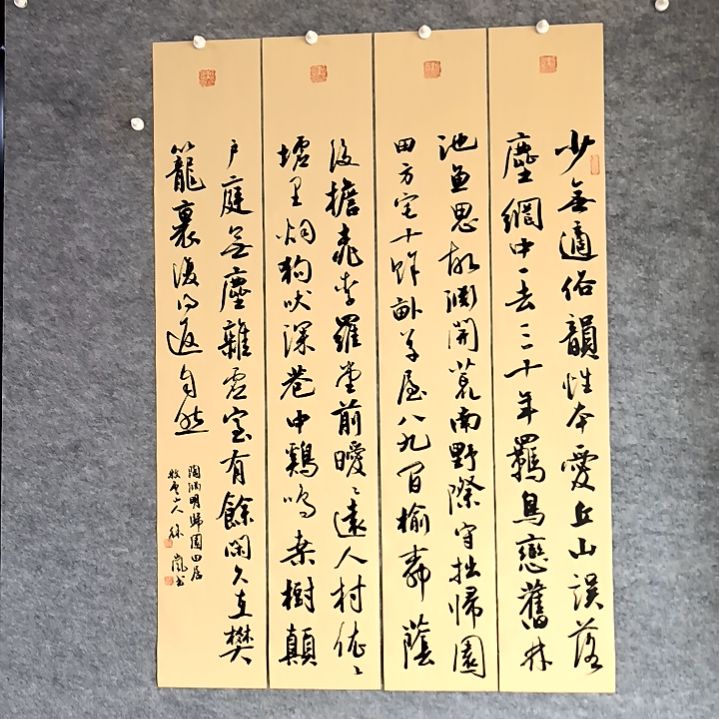 少無適俗韻性本愛丘山誤落
塵網中一去三十年羈鳥戀舊林
池魚思故淵開荒南野際守拙歸園
田方宅十餘畝草屋八九間榆柳蔭
後檐桃李羅堂前曖〻遠人村依〻
墟里烟狗吠深巷中鷄鳴桑樹顛
户庭無塵雜虛室有餘閑久在樊
籠裏復得返自然
陶淵明歸園田居
牧雲山人徐嵐書